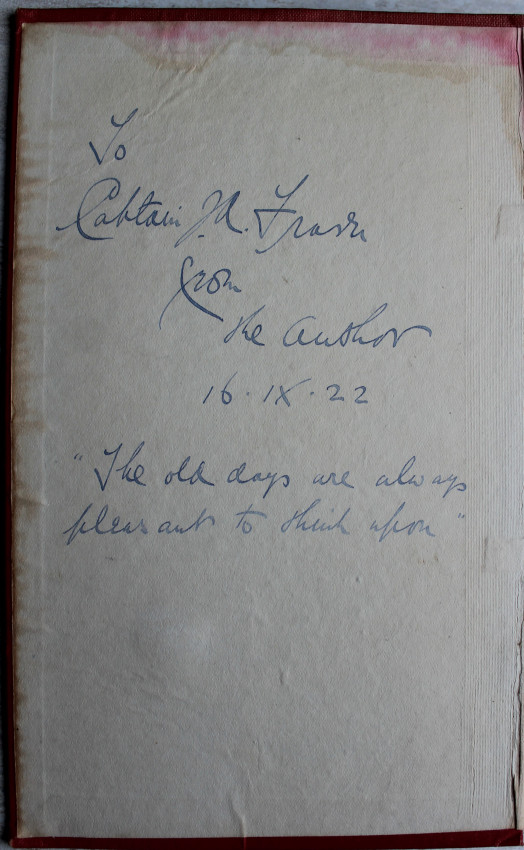 To
Captain J.A. Fraser
from
the Author
16.IX.22
"The old days are always
pleasant to think upon"